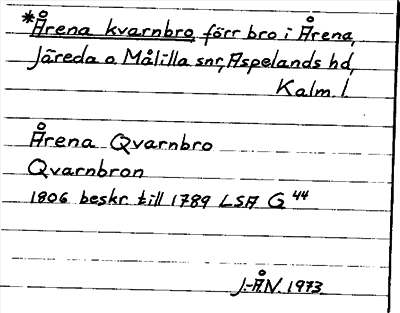 *Årena kvarnbro, förr bro i Årena,
Järeda o. Målilla snr, Aspelands hd,
Kalm. l.
Årena Qvarnbro
Qvarnbron
1806 beskr. till 1789 LSA G 44
J.-Å.N. 1973